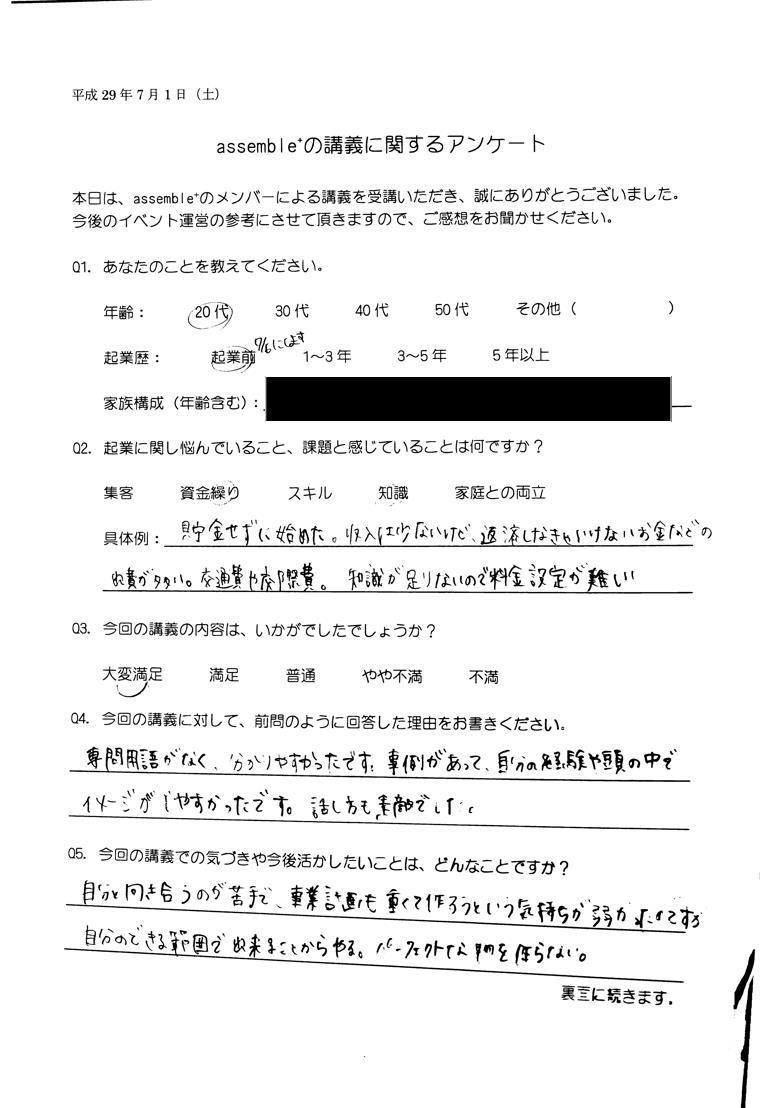 平成 29 年 7 月 1 日（土）
assemble⁺の講義に関するアンケート
本日は、assemble⁺のメンバーによる講義を受講いただき、誠にありがとうございました。
今後のイベント運営の参考にさせて頂きますので、ご感想をお聞かせください。
Q1. あなたのことを教えてください。
年齢： 20 代 30 代 40 代 50 代 その他（ ）
7/6にします
起業歴： 起業前 1～3 年 3～5 年 5 年以上
家族構成（年齢含む）：
Q2. 起業に関し悩んでいること、課題と感じていることは何ですか？
集客 資金繰り スキル 知識 家庭との両立
具体例： 貯金せずに始めた。収入は少ないけど、返済しなきゃいけないお金などの
出費が多い。交通費や交際費。 知識が足りないので料金設定が難しい
Q3. 今回の講義の内容は、いかがでしたでしょうか？
大変満足 満足 普通 やや不満 不満
Q4. 今回の講義に対して、前問のように回答した理由をお書きください。
専門用語がなく、分かりやすかったです。事例があって、自分の経験や頭の中で
イメージがしやすかったです。話し方も素敵でした。
Q5. 今回の講義での気づきや今後活かしたいことは、どんなことですか？
自分と向き合うのが苦手で、事業計画も重くて作ろうという気持ちが弱かったのですが
自分のできる範囲で出来ることからやる。パーフェクトな物を作らない。
裏面に続きます。